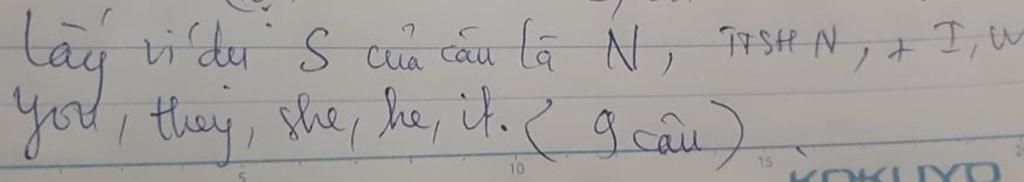 Lấy ví dụ S của câu là N, TTSH N, + I, W
you, they, she, he, it. ( 9 câu )
5 10 15 2
KOKUYO